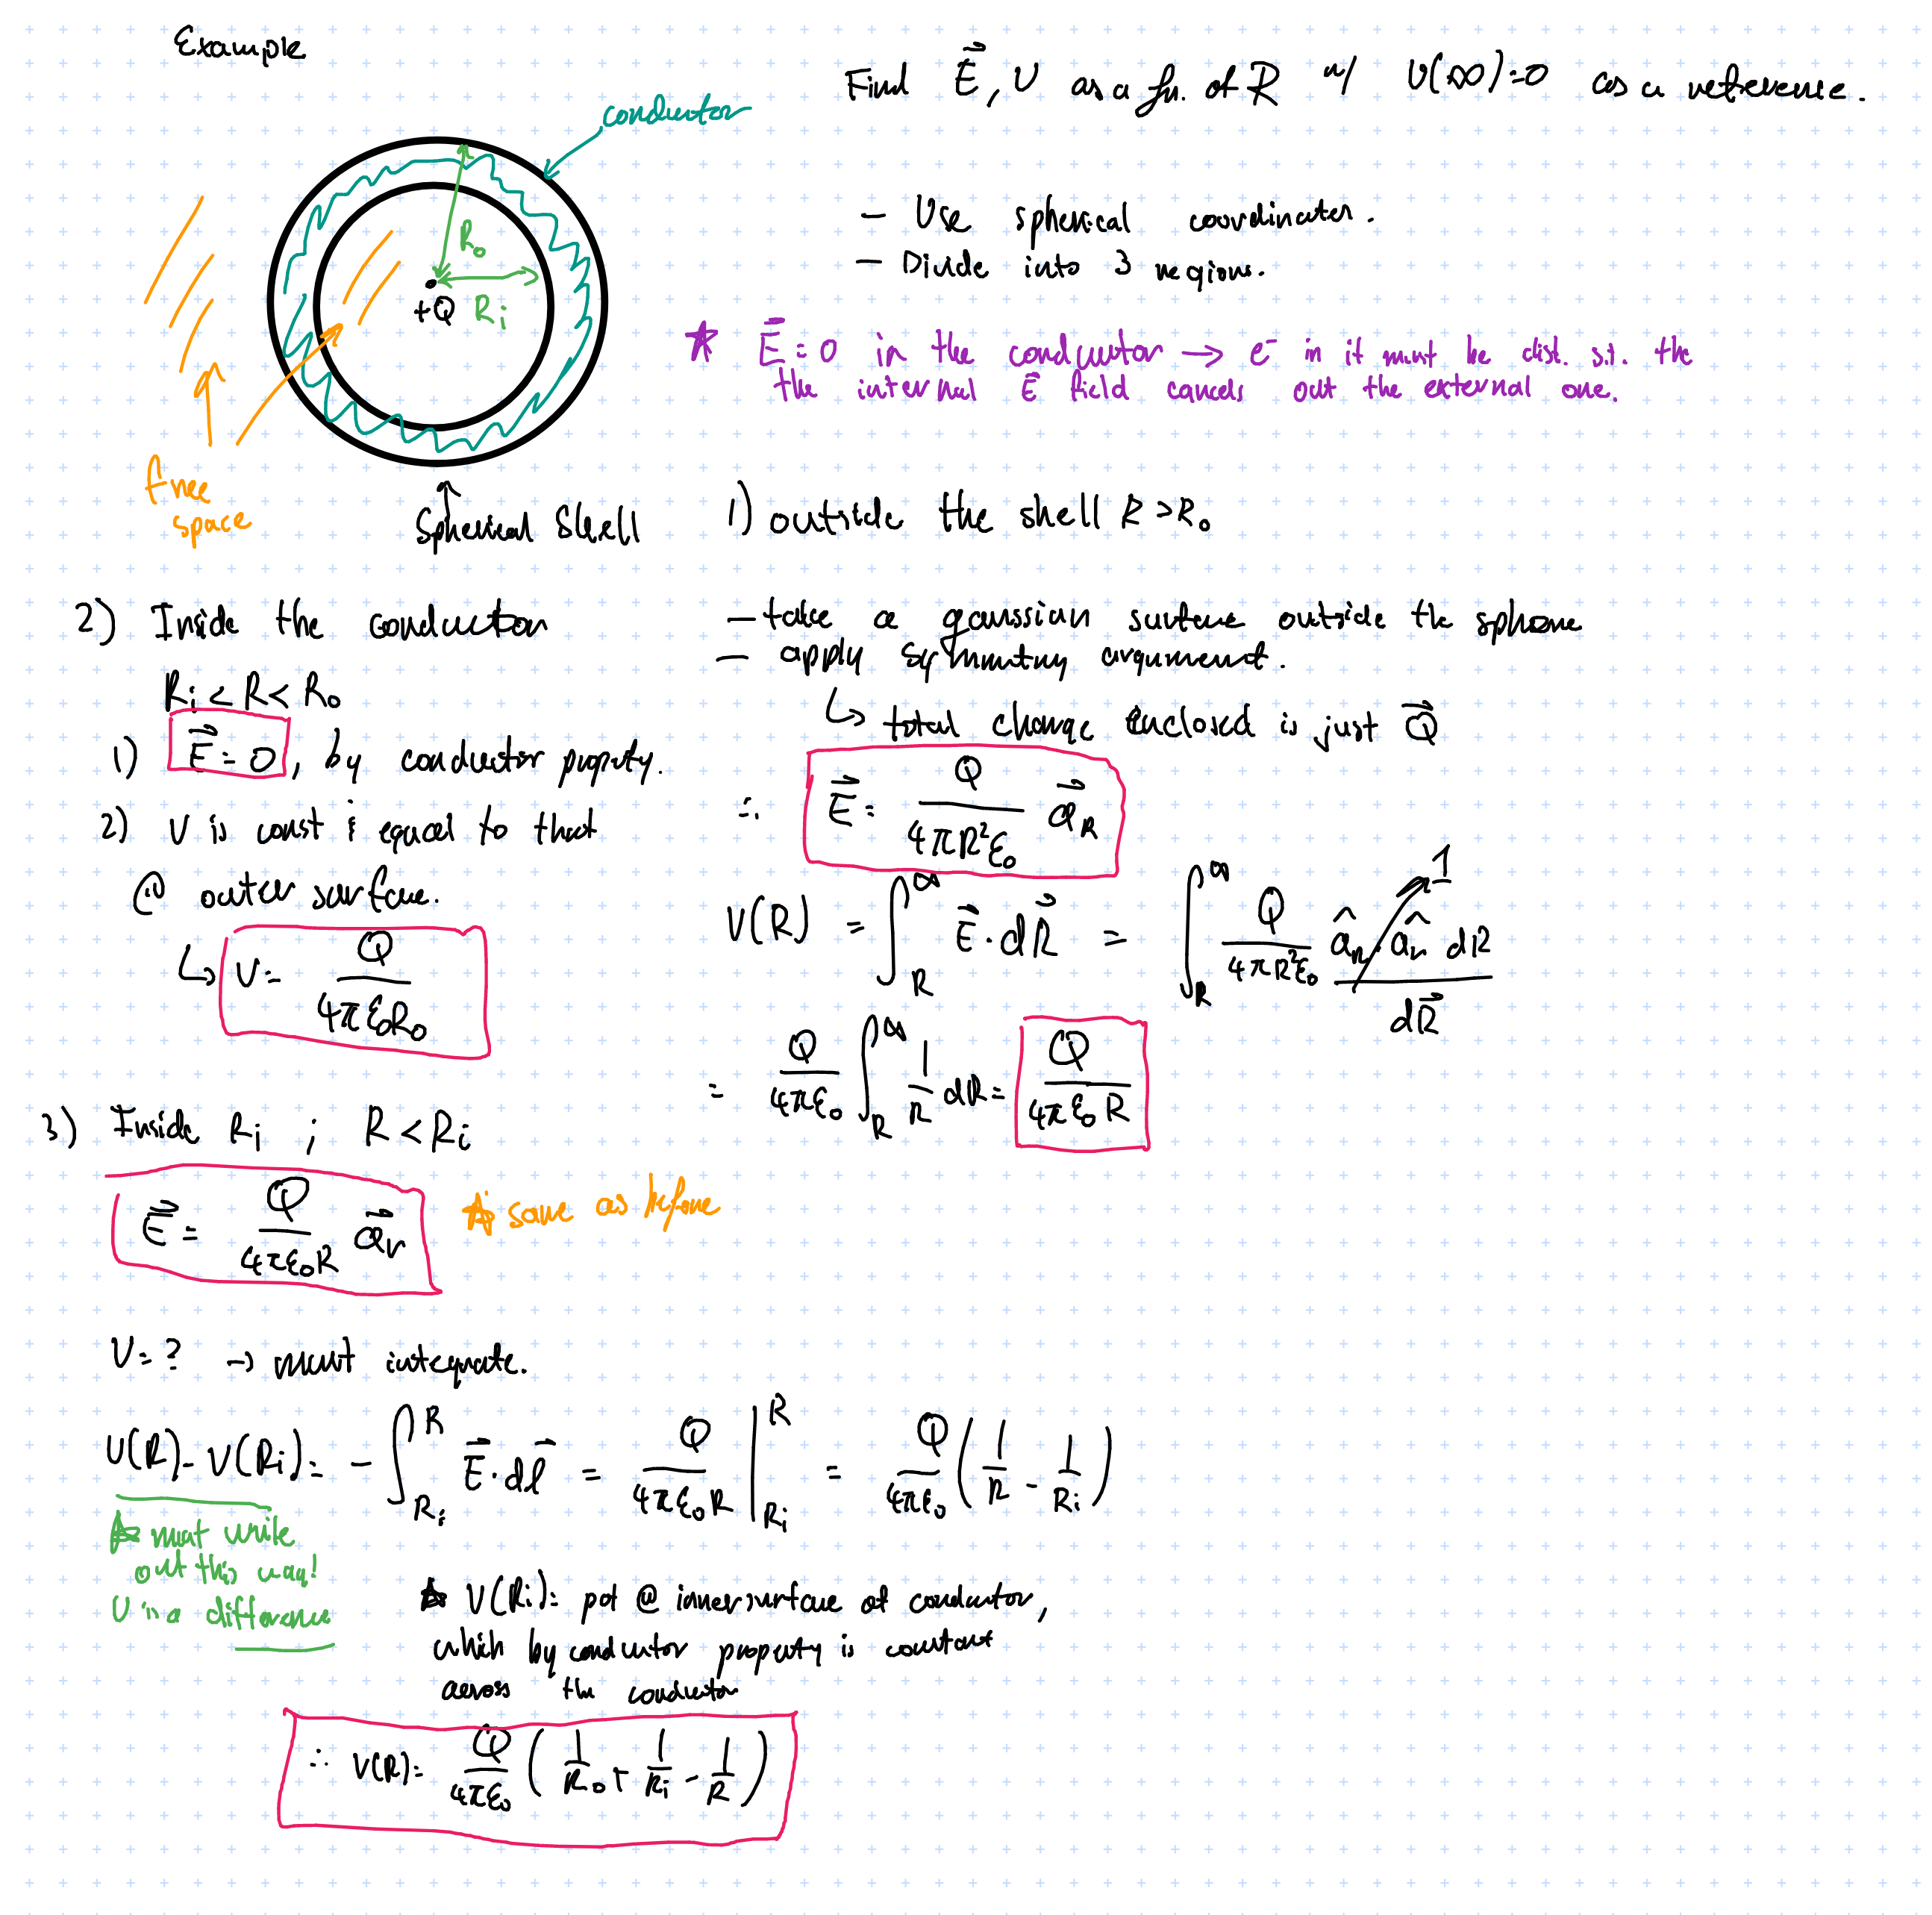 Example
Find E⃗, V as a fn. of R w/ V(∞)=0 as a reference.
conductor
R₀
+Q
Rᵢ
free
space
Spherical Shell
- Use spherical coordinates.
- Divide into 3 regions.
★ E⃗ = 0 in the conductor → e⁻ in it must be dist. s.t. the
the internal E⃗ field cancels out the external one.
1) outside the shell R > R₀
- take a gaussian surface outside the sphere
- apply symmetry argument.
↳ total charge enclosed is just Q⃗
∴ E⃗ = Q / (4πR²ε₀) a⃗_R
V(R) = ∫_R^∞ E⃗ · dR⃗ = ∫_R^∞ Q / (4πR²ε₀) â_R · â_R dR
1
dR⃗
= Q / (4πε₀) ∫_R^∞ 1/R dR = Q / (4πε₀R)
2) Inside the conductor
Rᵢ < R < R₀
1) E⃗ = 0, by conductor property.
2) V is const & equal to that
@ outer surface.
↳ V = Q / (4πε₀R₀)
3) Inside Rᵢ ; R < Rᵢ
E⃗ = Q / (4πε₀R) a⃗_r
★ same as before
V = ? → must integrate.
V(R) - V(Rᵢ) = - ∫_{Rᵢ}^R E⃗ · dl⃗ = Q / (4πε₀R) |_{Rᵢ}^R = Q / (4πε₀) (1/R - 1/Rᵢ)
★ must write
out this way!
V is a difference
★ V(Rᵢ) = pot @ inner surface of conductor,
which by conductor property is constant
across the conductor
∴ V(R) = Q / (4πε₀) (1/R₀ + 1/Rᵢ - 1/R)